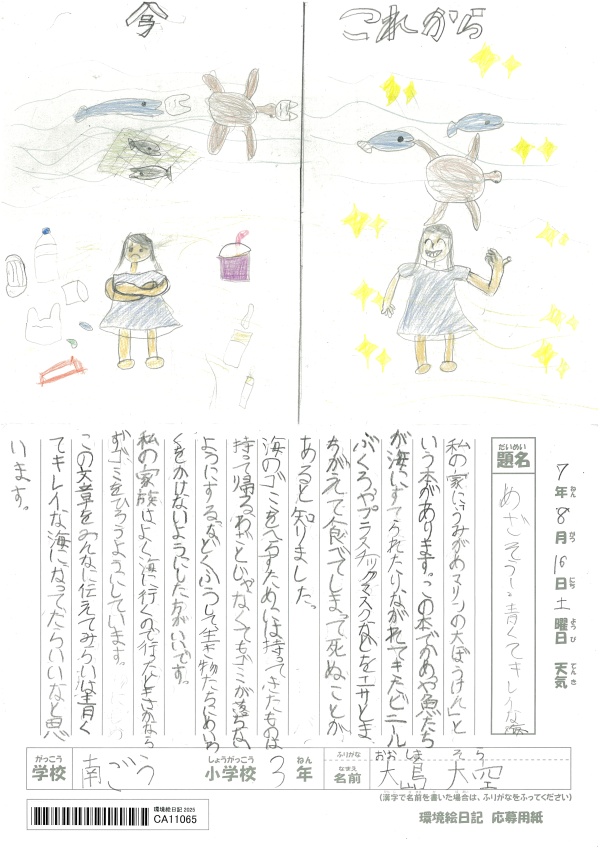 今
これから
7年8月16日土曜日 天気
ねん
がつ
にち
ようび
てんき
だいめい
題名
めざそう!青くてキレイな海
私の家に「うみがめマリンの大ぼうけん」と
いう本があります。この本でかめや魚たち
が海にすてられたり、ながれてきたビニール
ぶくろやプラスチックマスクなどをエサとま
ちがえて食べてしまって死ぬことが
あると知りました。
海のゴミをへらすためには持ってきたものは
持って帰る。わざとじゃなくてもゴミが落ちない
ようにする。などくふうして生き物たちにめいわ
くをかけないようにした方がいいです。
私の家族はよく海に行くので行ったときかなら
ずゴミをひろうようにしています。
この文章をみんなに伝えてみらいは青く
てキレイな海になってたらいいなと思
います。
がっこう
学校
南ごう
しょうがっこう
小学校
3
ねん
年
ふりがな
なまえ
名前
おおしま そら
大島 大空
(漢字で名前を書いた場合は、ふりがなをふってください)
環境絵日記 2025
CA11065
環境絵日記 応募用紙